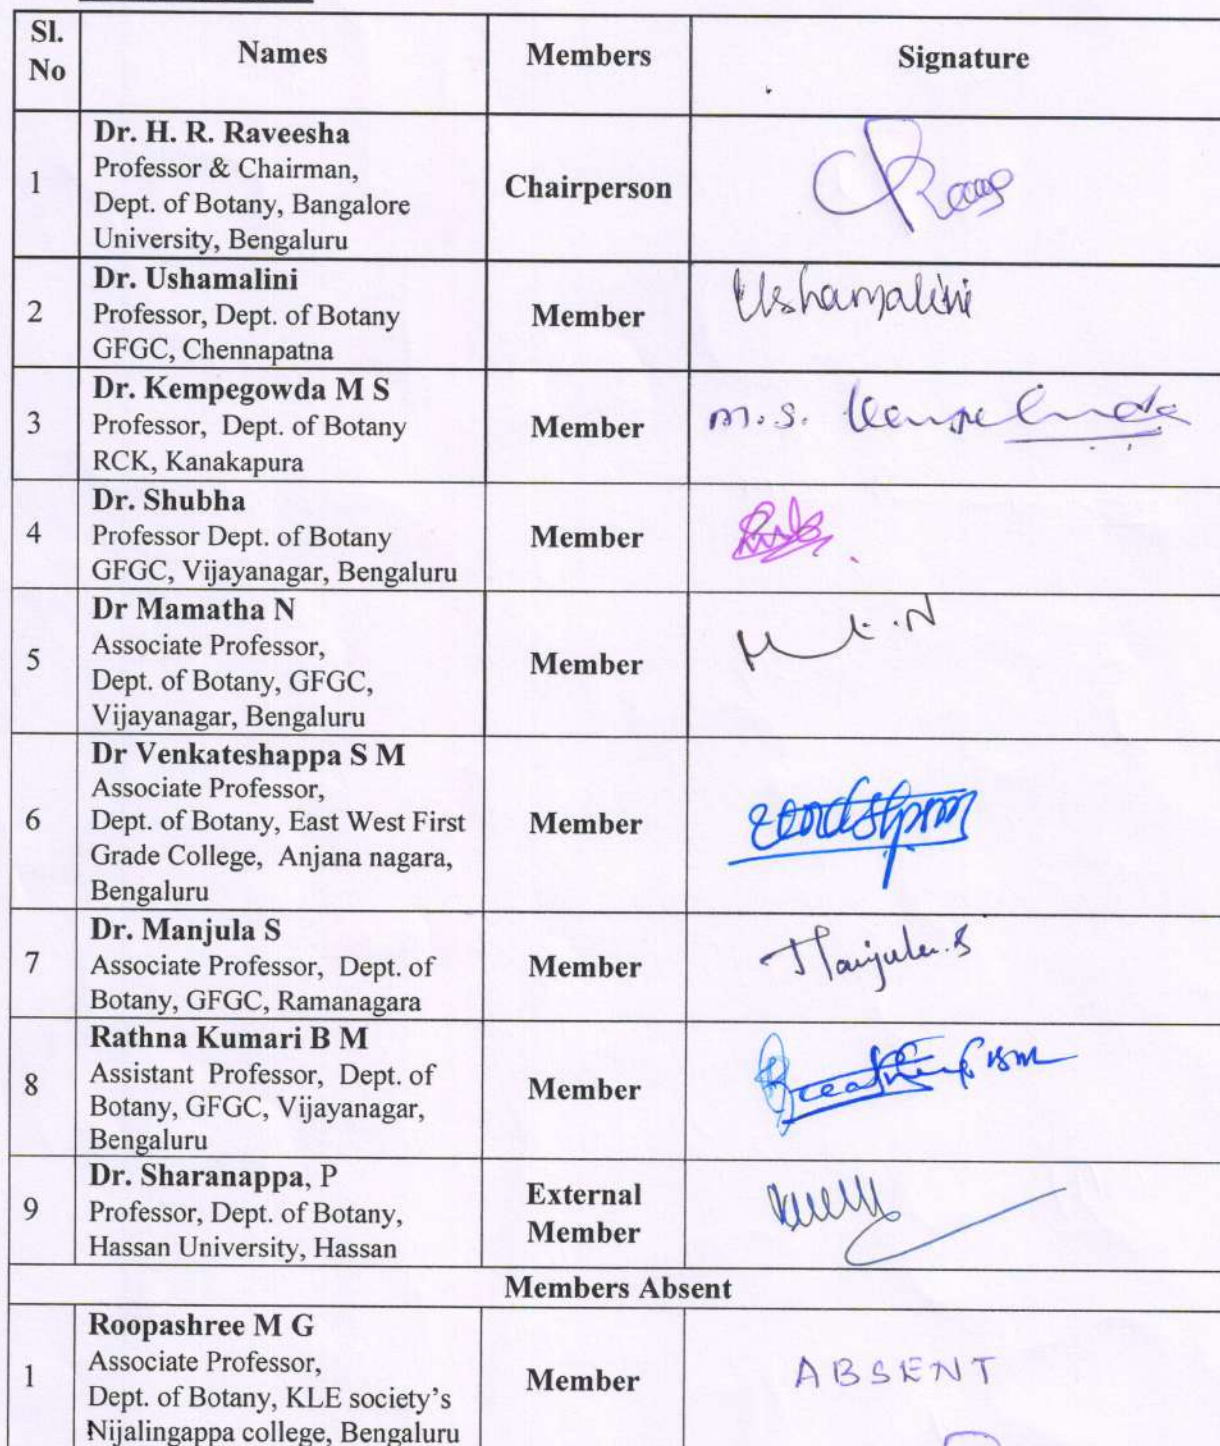 Sl. No
Names
Members
Signature
1
Dr. H. R. Raveesha
Professor & Chairman,
Dept. of Botany, Bangalore
University, Bengaluru
Chairperson
2
Dr. Ushamalini
Professor, Dept. of Botany
GFGC, Chennapatna
Member
Ushamalini
3
Dr. Kempegowda M S
Professor, Dept. of Botany
RCK, Kanakapura
Member
M.S.
4
Dr. Shubha
Professor Dept. of Botany
GFGC, Vijayanagar, Bengaluru
Member
5
Dr Mamatha N
Associate Professor,
Dept. of Botany, GFGC,
Vijayanagar, Bengaluru
Member
6
Dr Venkateshappa S M
Associate Professor,
Dept. of Botany, East West First
Grade College, Anjana nagara,
Bengaluru
Member
7
Dr. Manjula S
Associate Professor, Dept. of
Botany, GFGC, Ramanagara
Member
Manjula.S
8
Rathna Kumari B M
Assistant Professor, Dept. of
Botany, GFGC, Vijayanagar,
Bengaluru
Member
9
Dr. Sharanappa, P
Professor, Dept. of Botany,
Hassan University, Hassan
External
Member
Members Absent
1
Roopashree M G
Associate Professor,
Dept. of Botany, KLE society's
Nijalingappa college, Bengaluru
Member
ABSENT